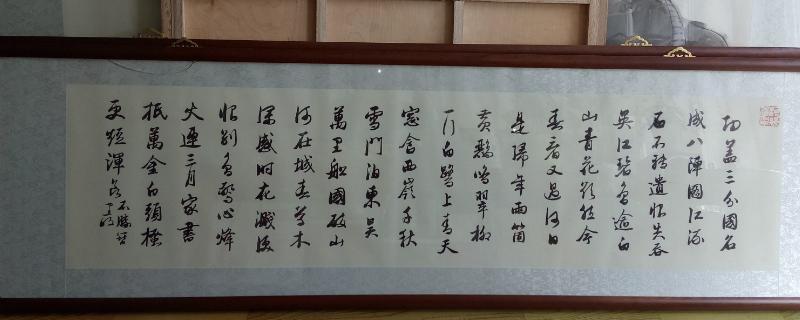 功蓋三分國名
成八陣圖江流
石不轉遺恨失吞
吳江碧鳥逾白
山青花欲然今
春看又過何日
是歸年兩箇
黃鸝鳴翠柳
一行白鷺上青天
窗含西嶺千秋
雪門泊東吳
萬里船國破山
河在城春草木
深感时花濺淚
恨别鳥驚心烽
火連三月家書
抵萬金白頭搔
更短渾欲不勝簪